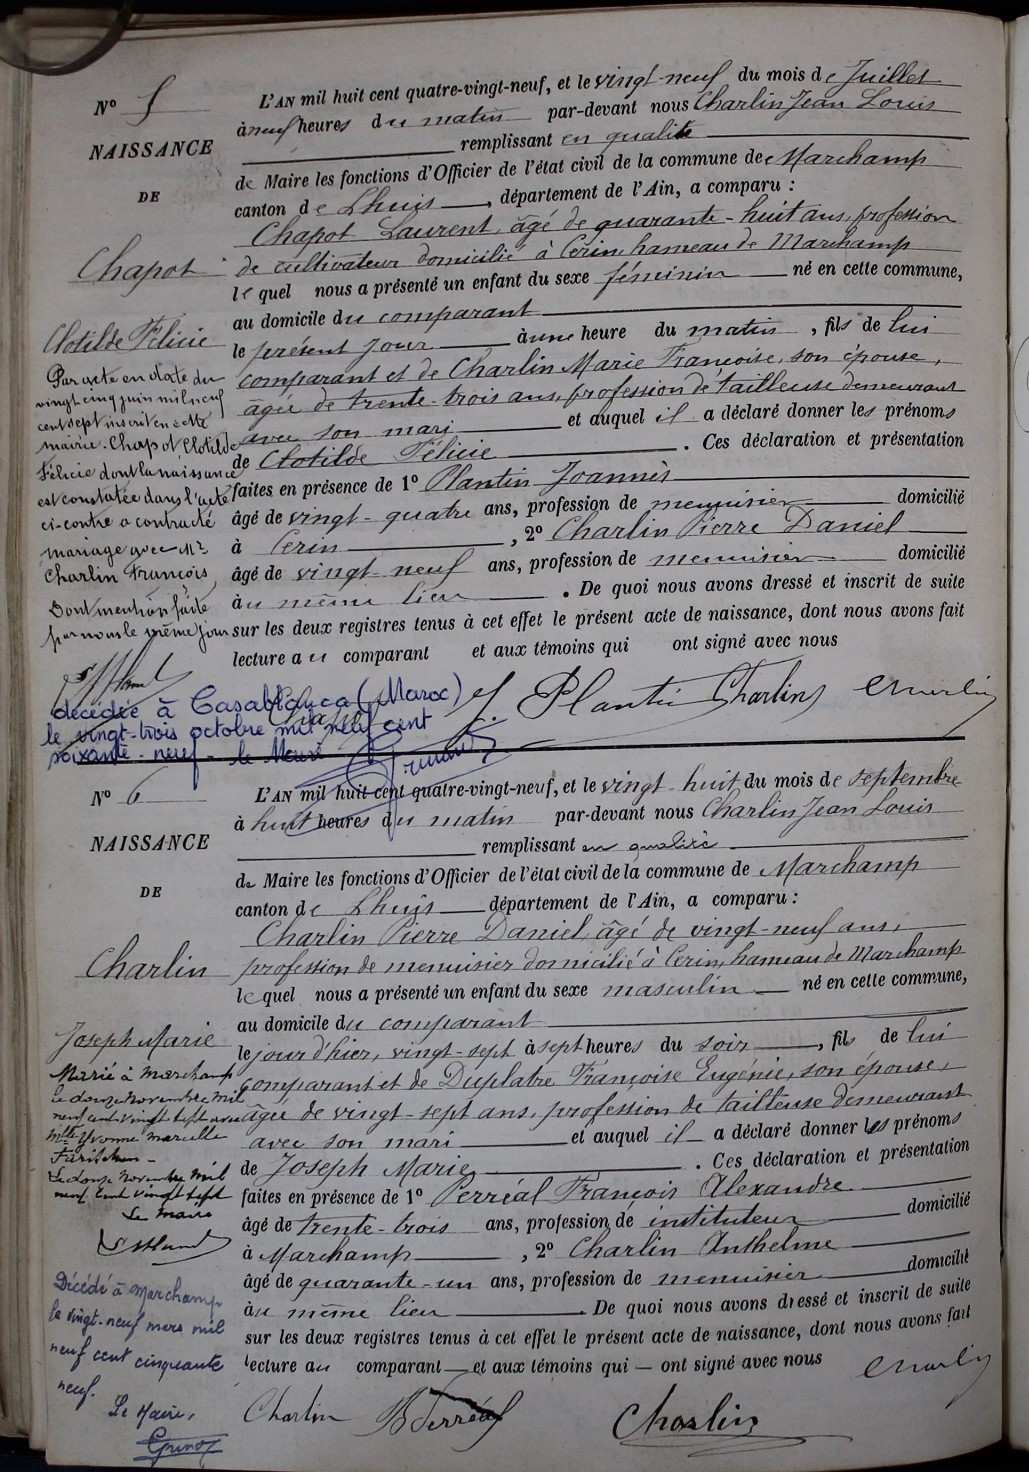 N° 5
NAISSANCE
DE
Chapot
Clotilde Félicie
Par acte en date du
vingt cinq juin mil neuf
cent sept inscrit en cette
mairie. Chapot Clotilde
Félicie dont la naissance
est constatée dans l'acte
ci-contre a contracté
mariage avec Mr
Charlin François
Dont mention faite
par nous le même jour
décédée à Casablanca (Maroc)
le vingt-trois octobre mil neuf cent
soixante-neuf - le Maire
L'AN mil huit cent quatre-vingt-neuf, et le vingt-neuf du mois de Juillet
à neuf heures du matin par-devant nous Charlin Jean Louis
remplissant en qualité
de Maire les fonctions d'Officier de l'état civil de la commune de Marchamp
canton de Lhuis, département de l'Ain, a comparu :
Chapot Laurent, âgé de quarante-huit ans, profession
de cultivateur domicilié à Cerin, hameau de Marchamp
lequel nous a présenté un enfant du sexe féminin né en cette commune,
au domicile du comparant
le présent jour à une heure du matin, fils de lui
comparant et de Charlin Marie Françoise, son épouse,
âgée de trente-trois ans, profession de tailleuse demeurant
avec son mari et auquel il a déclaré donner les prénoms
de Clotilde Félicie. Ces déclaration et présentation
faites en présence de 1° Plantin Joannès
âgé de vingt-quatre ans, profession de menuisier domicilié
à Cerin, 2° Charlin Pierre Daniel
âgé de vingt-neuf ans, profession de menuisier domicilié
au même lieu. De quoi nous avons dressé et inscrit de suite
sur les deux registres tenus à cet effet le présent acte de naissance, dont nous avons fait
lecture au comparant et aux témoins qui ont signé avec nous
J. Plantin Charlin Charlin
N° 6
NAISSANCE
DE
Charlin
Joseph Marie
Marié à Marchamp
le douze novembre mil
neuf cent vingt sept avec
Mlle Yvonne Marcelle
Le douze novembre mil
neuf cent vingt sept
Le Maire
Décédé à Marchamp
le vingt-neuf mars mil
neuf cent cinquante
neuf.
Le Maire,
L'AN mil huit cent quatre-vingt-neuf, et le vingt-huit du mois de septembre
à huit heures du matin par-devant nous Charlin Jean Louis
remplissant en qualité
de Maire les fonctions d'Officier de l'état civil de la commune de Marchamp
canton de Lhuis département de l'Ain, a comparu :
Charlin Pierre Daniel, âgé de vingt-neuf ans,
profession de menuisier domicilié à Cerin, hameau de Marchamp
lequel nous a présenté un enfant du sexe masculin né en cette commune,
au domicile du comparant
le jour d'hier, vingt-sept à sept heures du soir, fils de lui
comparant et de Duplatre Françoise Eugénie, son épouse,
âgée de vingt-sept ans, profession de tailleuse demeurant
avec son mari et auquel il a déclaré donner les prénoms
de Joseph Marie. Ces déclaration et présentation
faites en présence de 1° Perréal François Alexandre
âgé de trente-trois ans, profession de instituteur domicilié
à Marchamp, 2° Charlin Anthelme
âgé de quarante-un ans, profession de menuisier domicilié
au même lieu. De quoi nous avons dressé et inscrit de suite
sur les deux registres tenus à cet effet le présent acte de naissance, dont nous avons fait
lecture au comparant et aux témoins qui ont signé avec nous
Charlin Perréal Charlin Charlin